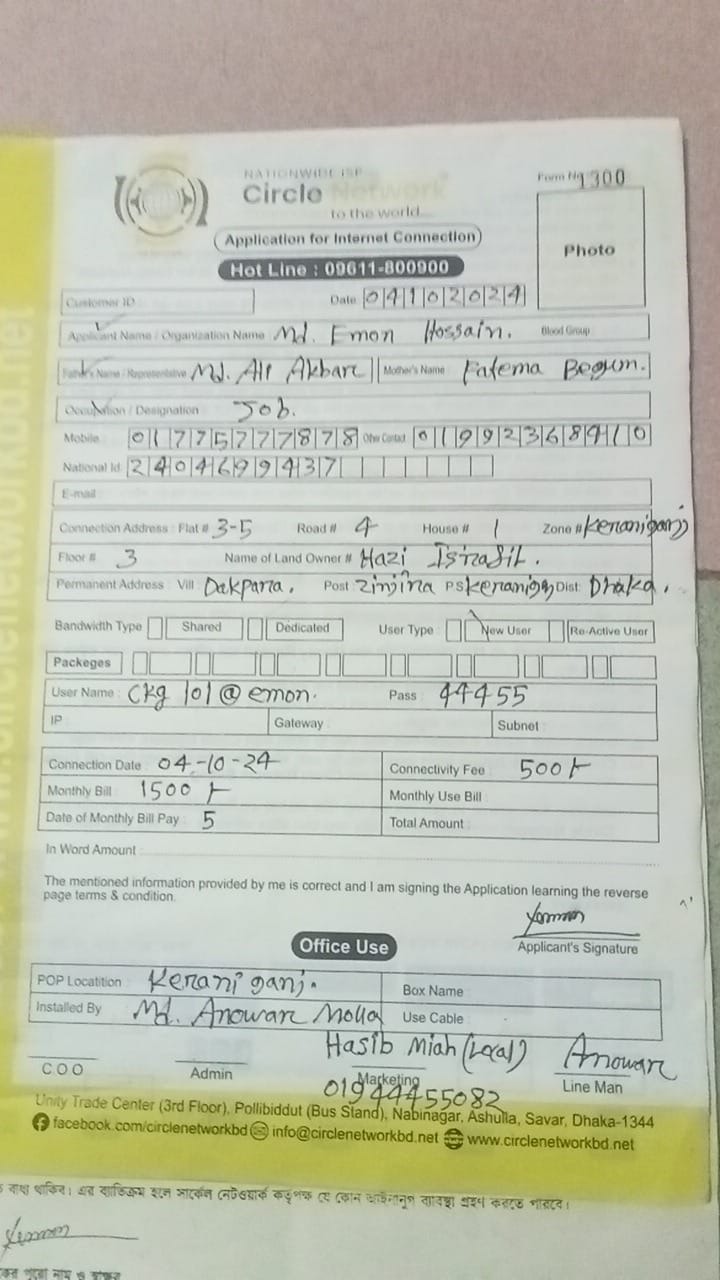 NATIONWIDE ISP
Circle Network
to the world
Form No 1300
Application for Internet Connection
Photo
Hot Line : 09611-800900
Customer ID
Date 04102024
Applicant Name / Organization Name Md. Emon Hossain. Blood Group
Father's Name / Representative Md. Ali Akbar Mother's Name : Fatema Begum.
Occupation / Designation Job.
Mobile 01775777878 Other Contact 01992368910
National Id 2404699437
E-mail
Connection Address : Flat # 3-5 Road # 4 House # 1 Zone # Keraniganj
Floor # 3 Name of Land Owner # Hazi Israfil.
Permanent Address : Vill Dakpara. Post Zinjira P.S Keraniganj Dist: Dhaka.
Bandwidth Type Shared Dedicated User Type : New User Re-Active User
Packeges
User Name : Ckg 101@emon. Pass : 44455
IP Gateway Subnet
Connection Date : 04-10-24 Connectivity Fee : 500
Monthly Bill : 1500 Monthly Use Bill :
Date of Monthly Bill Pay : 5 Total Amount
In Word Amount :
The mentioned information provided by me is correct and I am signing the Application learning the reverse
page terms & condition.
Applicant's Signature
Office Use
POP Locatition Keraniganj. Box Name
Installed By Md. Anowar Molla Use Cable
Hasib Miah (Local) Anowar
C.O.O Admin Marketing Line Man
01944455082
Unity Trade Center (3rd Floor), Pollibiddut (Bus Stand), Nabinagar, Ashulia, Savar, Dhaka-1344
facebook.com/circlenetworkbd info@circlenetworkbd.net www.circlenetworkbd.net
বাধ্য থাকিব। এর ব্যতিক্রম হলে সার্কেল নেটওয়ার্ক কর্তৃপক্ষ যে কোন আইনানুগ ব্যবস্থা গ্রহণ করতে পারবে।